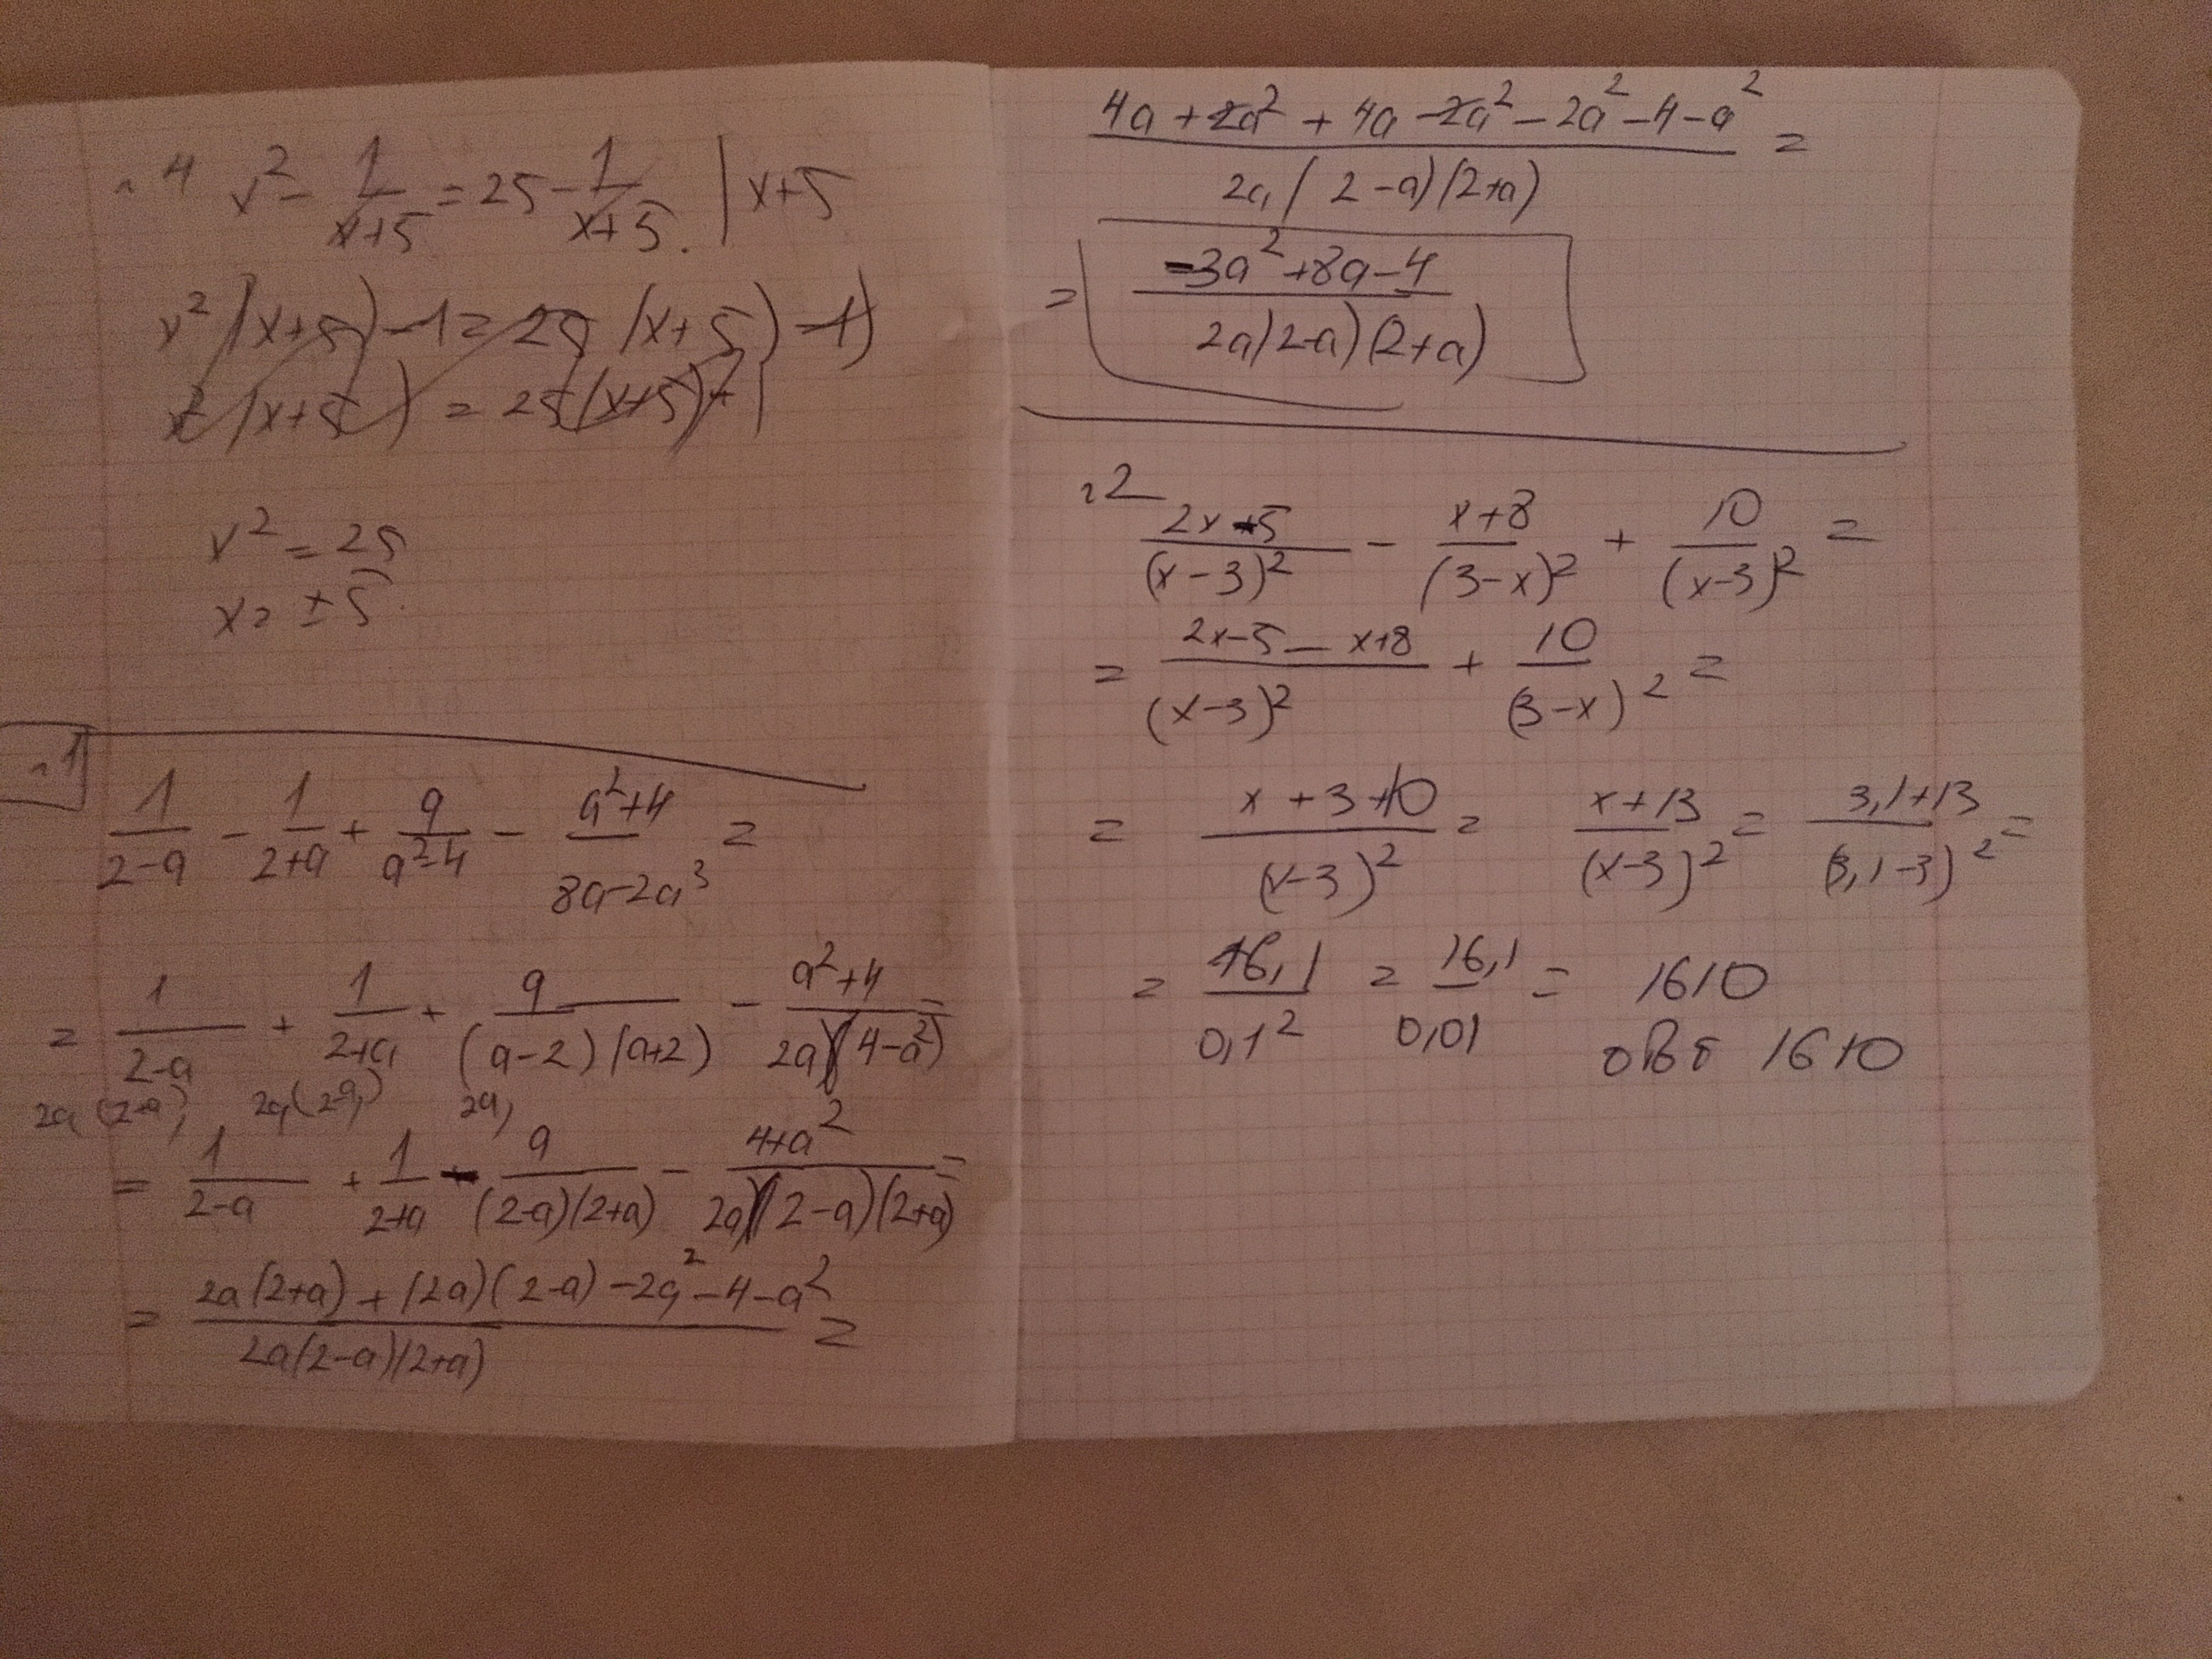 ~4 x² - 1/(x+5) = 25 - 1/(x+5). | x+5
x² (x+5) - 1 = 25 (x+5) - 1)
x² (x+5) = 25(x+5) + 1
x² = 25
x = ± 5.
~1
1/(2-a) - 1/(2+a) + a/(a²-4) - (a²+4)/(8a-2a³) =
= 1/(2-a) + 1/(2+a) + a/((a-2)(a+2)) - (a²+4)/(2a(4-a²)) =
2a(2+a) 2a(2-a) 2a)
= 1/(2-a) + 1/(2+a) - a/((2-a)(2+a)) - (4+a²)/(2a(2-a)(2+a)) =
= (2a(2+a) + (2a)(2-a) - 2a² - 4 - a²)/(2a(2-a)(2+a)) =
(4a + 2a² + 4a - 2a² - 2a² - 4 - a²)/(2a(2-a)(2+a)) =
= (-3a² + 8a - 4)/(2a(2-a)(2+a))
~2
(2x-5)/(x-3)² - (x+8)/(3-x)² + 10/(x-3)² =
= (2x-5 - x+8)/(x-3)² + 10/(3-x)² =
= (x+3+10)/(x-3)² = (x+13)/(x-3)² = (3,1+13)/(3,1-3)² =
= 16,1/0,1² = 16,1/0,01 = 1610
отвт 1610